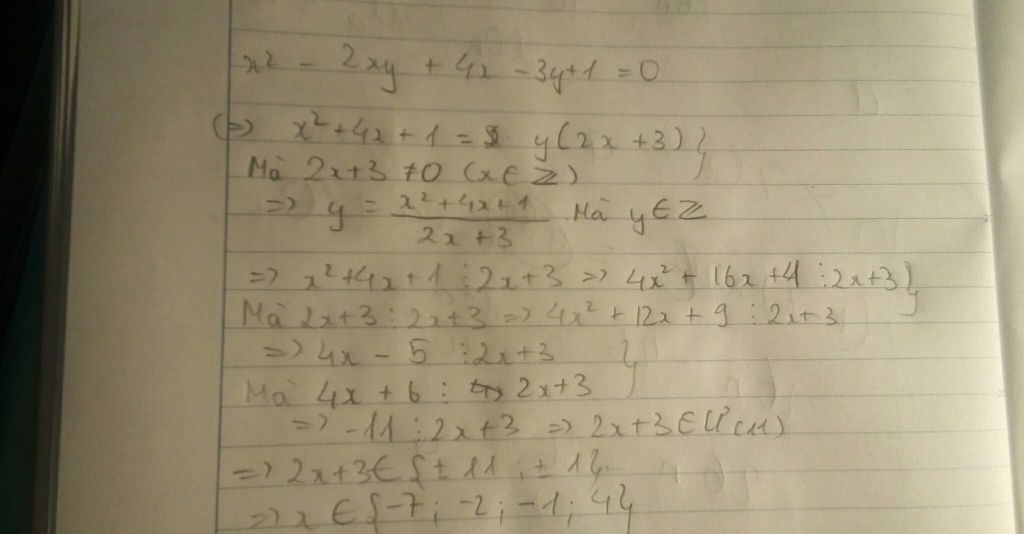 x² - 2xy + 4x - 3y + 1 = 0
(=) x² + 4x + 1 = y(2x + 3) }
Mà 2x + 3 ≠ 0 (x ∈ Z)
=> y = (x² + 4x + 1)/(2x + 3) Mà y ∈ Z
=> x² + 4x + 1 ⋮ 2x + 3 => 4x² + 16x + 4 ⋮ 2x + 3 }
Mà 2x + 3 ⋮ 2x + 3 => 4x² + 12x + 9 ⋮ 2x + 3
=> 4x - 5 ⋮ 2x + 3 }
Mà 4x + 6 ⋮ 2x + 3
=> -11 ⋮ 2x + 3 => 2x + 3 ∈ Ư(11)
=> 2x + 3 ∈ {± 11 ; ± 1}
=> x ∈ {-7 ; -2 ; -1 ; 4}